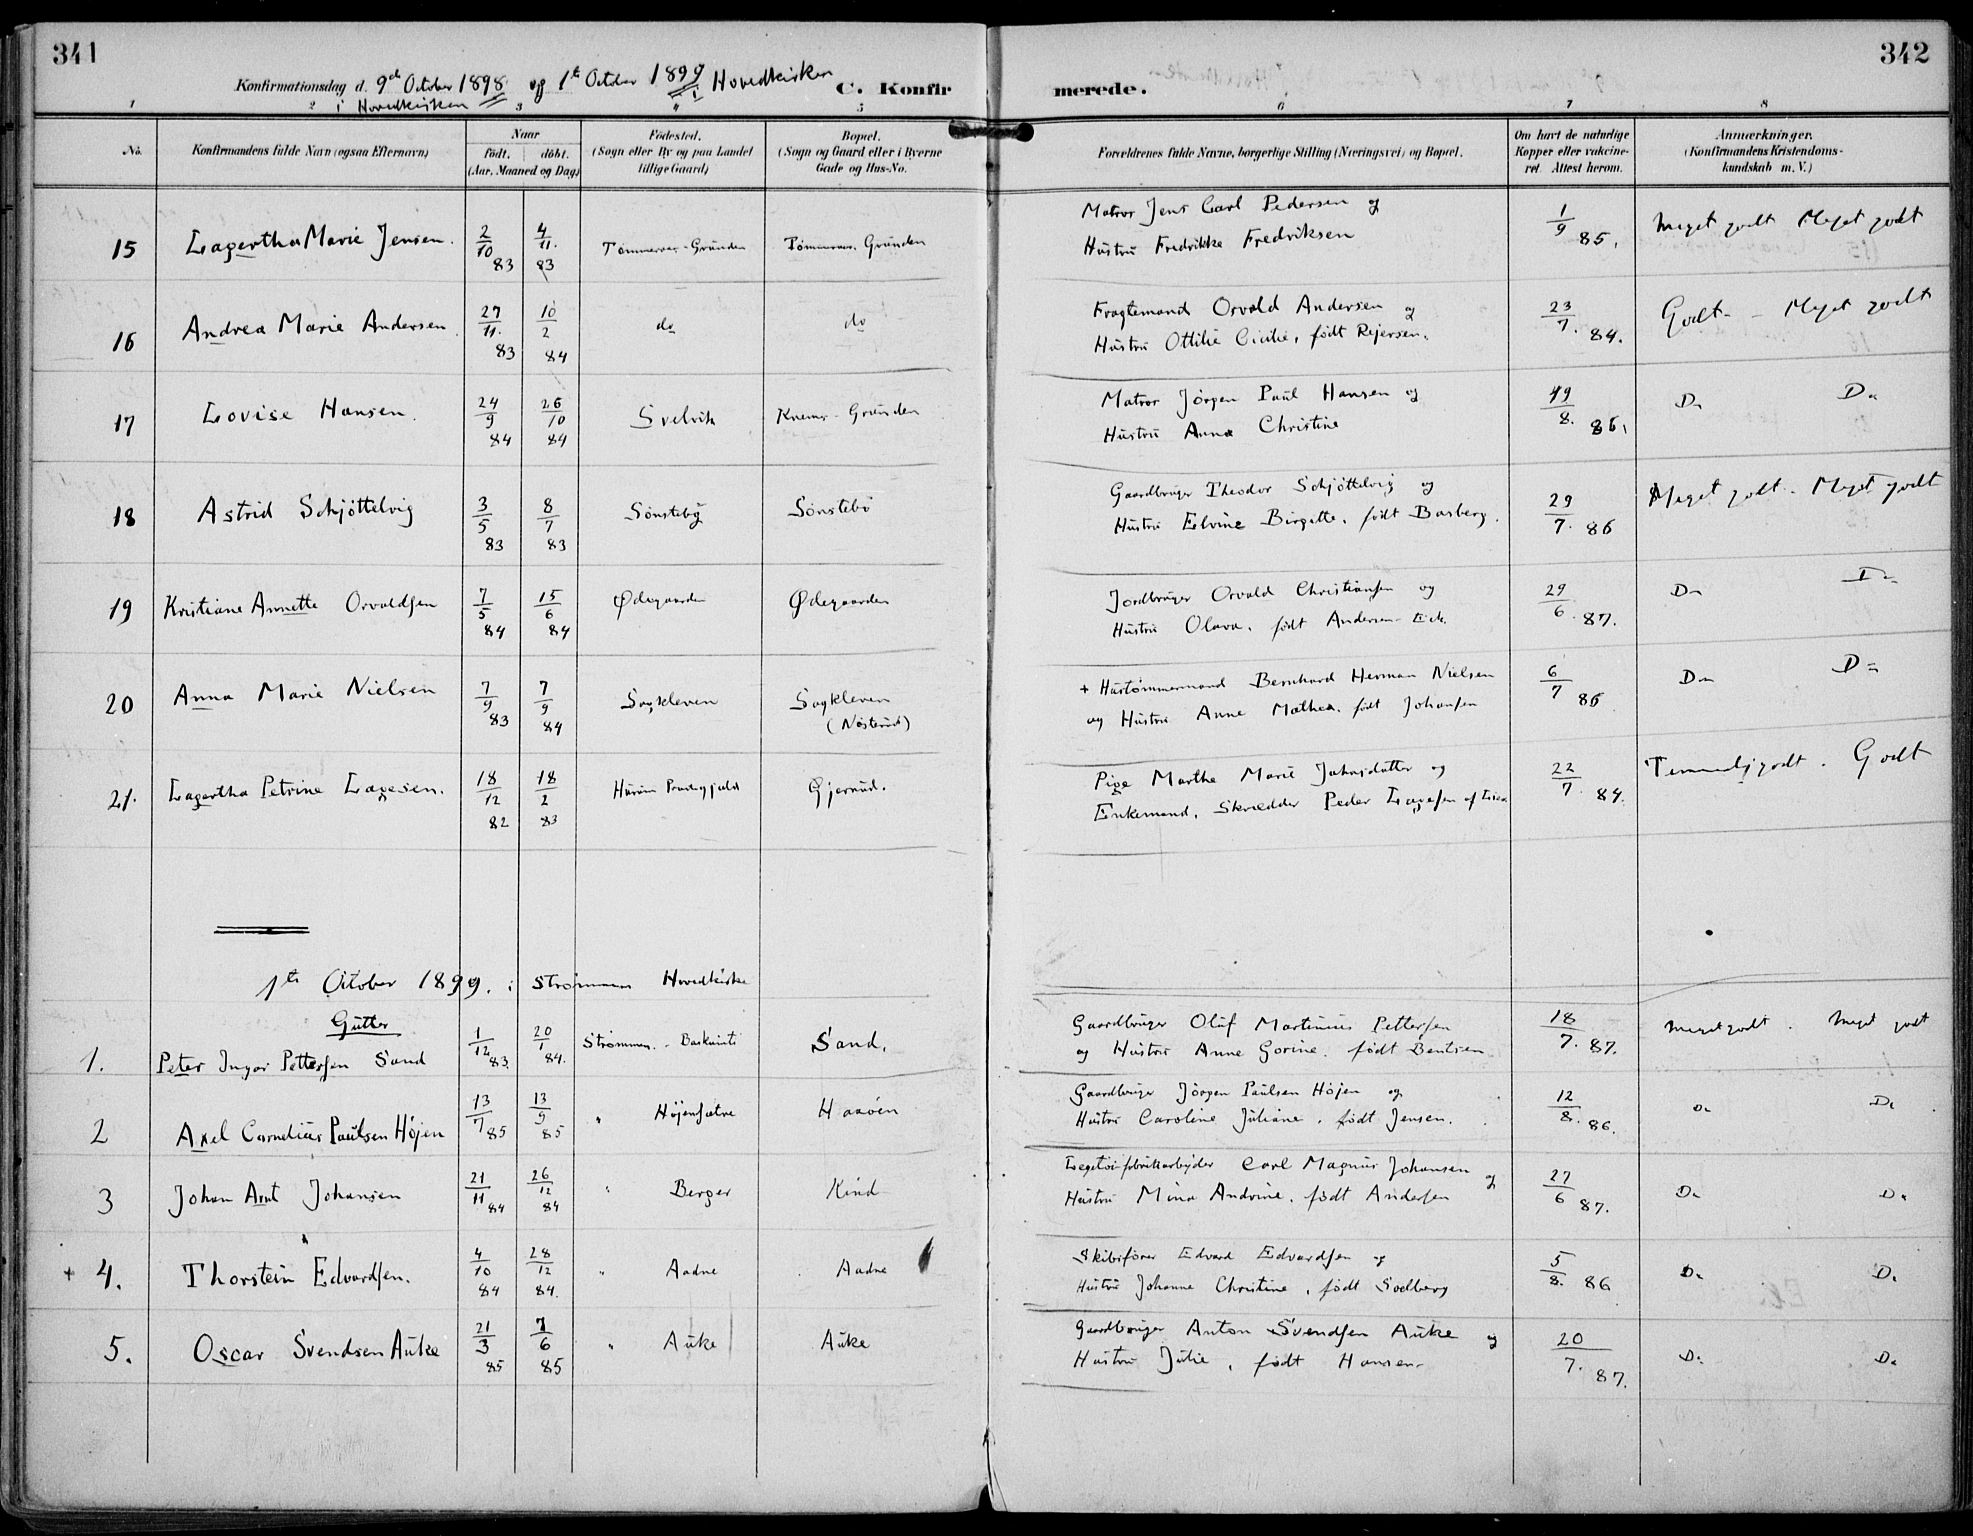 341
342
Konfirmationsdag d. 9de October 1898 og 1te October 1899 i Hovedkirken
i Hovedkirken
C. Konfirmerede.
1 2 3 4 5 6 7 8
No. Konfirmandens fulde Navn (ogsaa Efternavn) Naar født. døbt. (Aar, Maaned og Dag) Fødested. (Sogn eller By og paa Landet tillige Gaard) Bopæl. (Sogn og Gaard eller i Byerne Gade og Hus-No. Forældrenes fulde Navne, borgerlige Stilling (Næringsvei) og Bopæl. Om havt de naturlige Kopper eller vakcineret. Attest herom. Anmærkninger. (Konfirmandens Kristendomskundskab m. V.)
15 Lagertha Marie Jensen. 2/10 83 4/11. 83 Grunden Grunden Matros Jens Carl Pedersen og
Hustru Fredrikke Fredriksen 1/9 85. Meget godt Meget godt
16 Andrea Marie Andersen 27/11. 83 10/2 84 do do Fragtemand Osvald Andersen og
Hustru Ottilie Cicilie, født Rejersen. 23/7. 84. Godt - Meget godt
17 Lovise Hansen. 24/9 84 26/10 84 Svelvik Grunden Matros Jörgen Paul Hansen og
Hustru Anna Christine 19/8. 86. Do Do
18 Astrid Schjöttelvig 3/5 83 8/7 83 Sönsteby Sönstebö Gaardbruger Theodor Schjöttelvig og
Hustru Elvine Birgitte, født Basberg. 29/7. 86 Meget godt. Meget godt
19 Kristiane Annette Osvaldsen 7/5 84 15/6 84 Ødegaarden Ødegaarden Jordbruger Osvald Christiansen og
Hustru Olava, født Andersen Eek. 29/6. 87. Do Do
20 Anna Marie Nielsen 7/9 83 7/9 84 Sagkleven Sagkleven
(Nøsterud) + Hustømmermand Bernhard Herman Nielsen
og Hustru Anne Mathea, født Johansen 6/7 86 Do Do
21. Lagertha Petrine Lagesen. 18/12 82 18/2 83 Hurum Gjerud. Pige Marthe Marie og
Enkemand, Skrædder Peder Lagesen af 22/7. 84. Temmelig godt. Godt
1te October 1899. i Strømmens Hovedkirke
Gutter
1. Peter Ingvar Pettersen Sand 1/12 83. 20/1 84. Strømmen. Sand. Gaardbruger Oluf Martinius Pettersen
og Hustru Anne Gorine. født Bentsen 18/7. 87. Meget godt. Meget godt
2 Axel Cornelius Paulsen Höjen 13/7 85 13/9 85 " Höjensætre Gaardbruger Jörgen Paulsen Höjen og
Hustru Caroline Juliane, født Jensen. 12/8. 86. Do Do
3 Johan Arnt Johansen 21/11 84 26/12 84 " Berger Kind Legetöifabrikarbejder Carl Magnus Johansen og
Hustru Mina Andrine, født Andersen 27/6 87. Do Do
+ 4. Thorstein Edvardsen. 4/10 84 28/12 84. " Aadne Aadne Skibsfører Edvard Edvardsen og
Hustru Johanne Christine, født Sodberg 5/8. 86 Do Do
5. Oscar Svendsen Auke 21/3 85 7/6 85 " Auke Auke Gaardbruger Anton Svendsen Auke og
Hustru Julie, født Hansen. 20/7. 87. Do Do